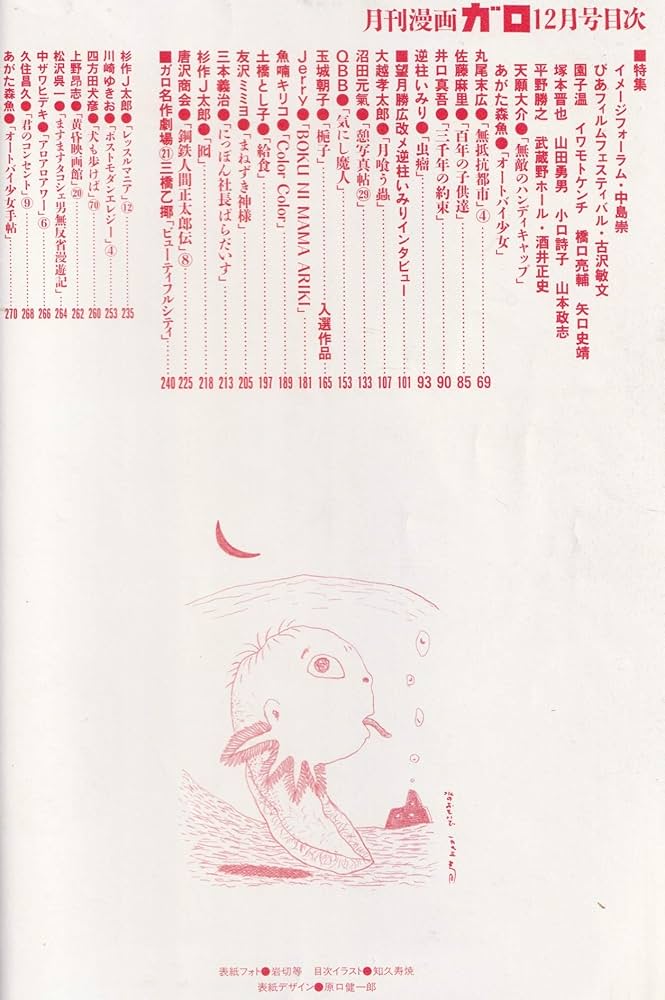 月刊漫画ガロ12月号目次
■特集
イメージフォーラム・中島崇
ぴあフィルムフェスティバル・古沢敏文
園子温 イワモトケンチ 橋口亮輔 矢口史靖
塚本晋也 山田勇男 小口詩子 山本政志
平野勝之 武蔵野ホール・酒井正史
天願大介●「無敵のハンディキャップ」
あがた森魚●「オートバイ少女」
丸尾末広●「無抵抗都市」④ 69
佐藤麻里●「百年の子供達」 85
井口真吾●「三千年の約束」 90
逆柱いみり●「虫瘤」 93
■望月勝広改メ逆柱いみりインタビュー 101
大越孝太郎●「月喰う蟲」 107
沼田元氣●「憩写真帖」㉙ 133
QBB●「気にし魔人」 153
玉城朝子●「梔子」 入選作品 165
Jerry●「BOKU NI MAMA ARIKI」 181
魚喃キリコ●「Color Color」 189
土橋とし子●「給食」 197
友沢ミミヨ●「まねずき神様」 205
三本義治●「にっぽん社長ぱらだいす」 213
杉作J太郎●「囮」 218
唐沢商会●「鋼鉄人間正太郎伝」⑧ 225
■ガロ名作劇場㉑三橋乙揶「ビューティフルシティ」 240
杉作J太郎●「レッスルマニア」⑫ 235
川崎ゆきお●「ポストモダンエレジー」④ 253
四方田犬彦●「犬も歩けば」⑦⓪ 260
上野昂志●「黄昏映画館」⑳ 262
松沢呉一●「ますますタコシェ男無反省漫遊記」 264
中ザワヒデキ●「アロアロアワー」⑥ 266
久住昌久●「君のコンセント」⑨ 268
あがた森魚●「オートバイ少女手帖」 270
表紙フォト●岩切等 目次イラスト●知久寿焼
表紙デザイン●原口健一郎